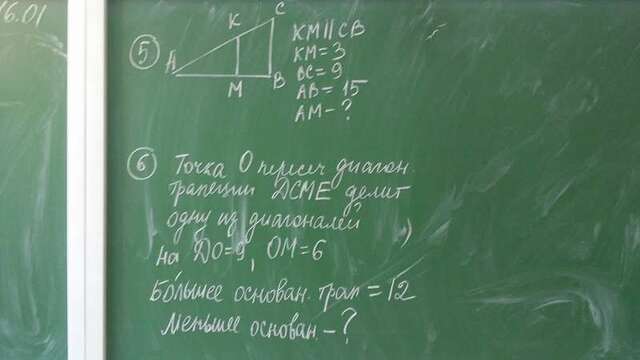 16.01
5
A
K
C
M
B
KM || CB
KM = 3
BC = 9
AB = 15
AM - ?
6 Точка О пересеч диагон.
трапеции DCME делит
одну из диагоналей
на DO=9, OM=6
Большее основан. трап = 12
Меньшее основан. - ?